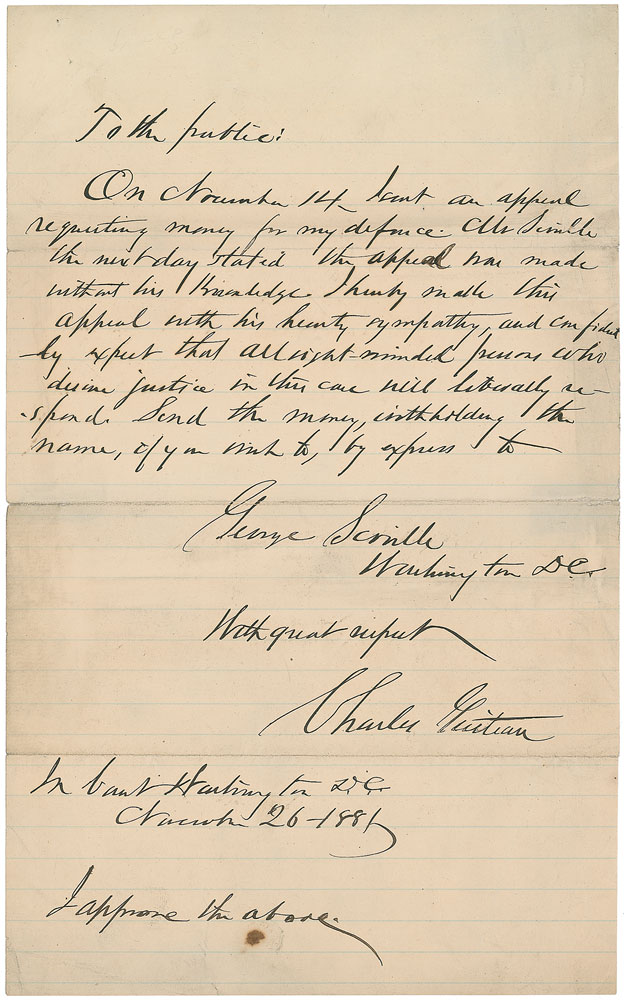 To the public:
On November 14 I sent an appeal
requesting money for my defence. Mr Scoville
the next day stated the appeal was made
without his knowledge. I hereby make this
appeal with his hearty sympathy, and confident
-ly expect that all right-minded persons who
desire justice in this case will liberally re-
-spond. Send the money, withholding the
name, if you wish to, by express to
George Scoville
Washington D.C.
With great respect
Charles Guiteau
In Court Washington D.C.
November 26-1881
I approve the above.